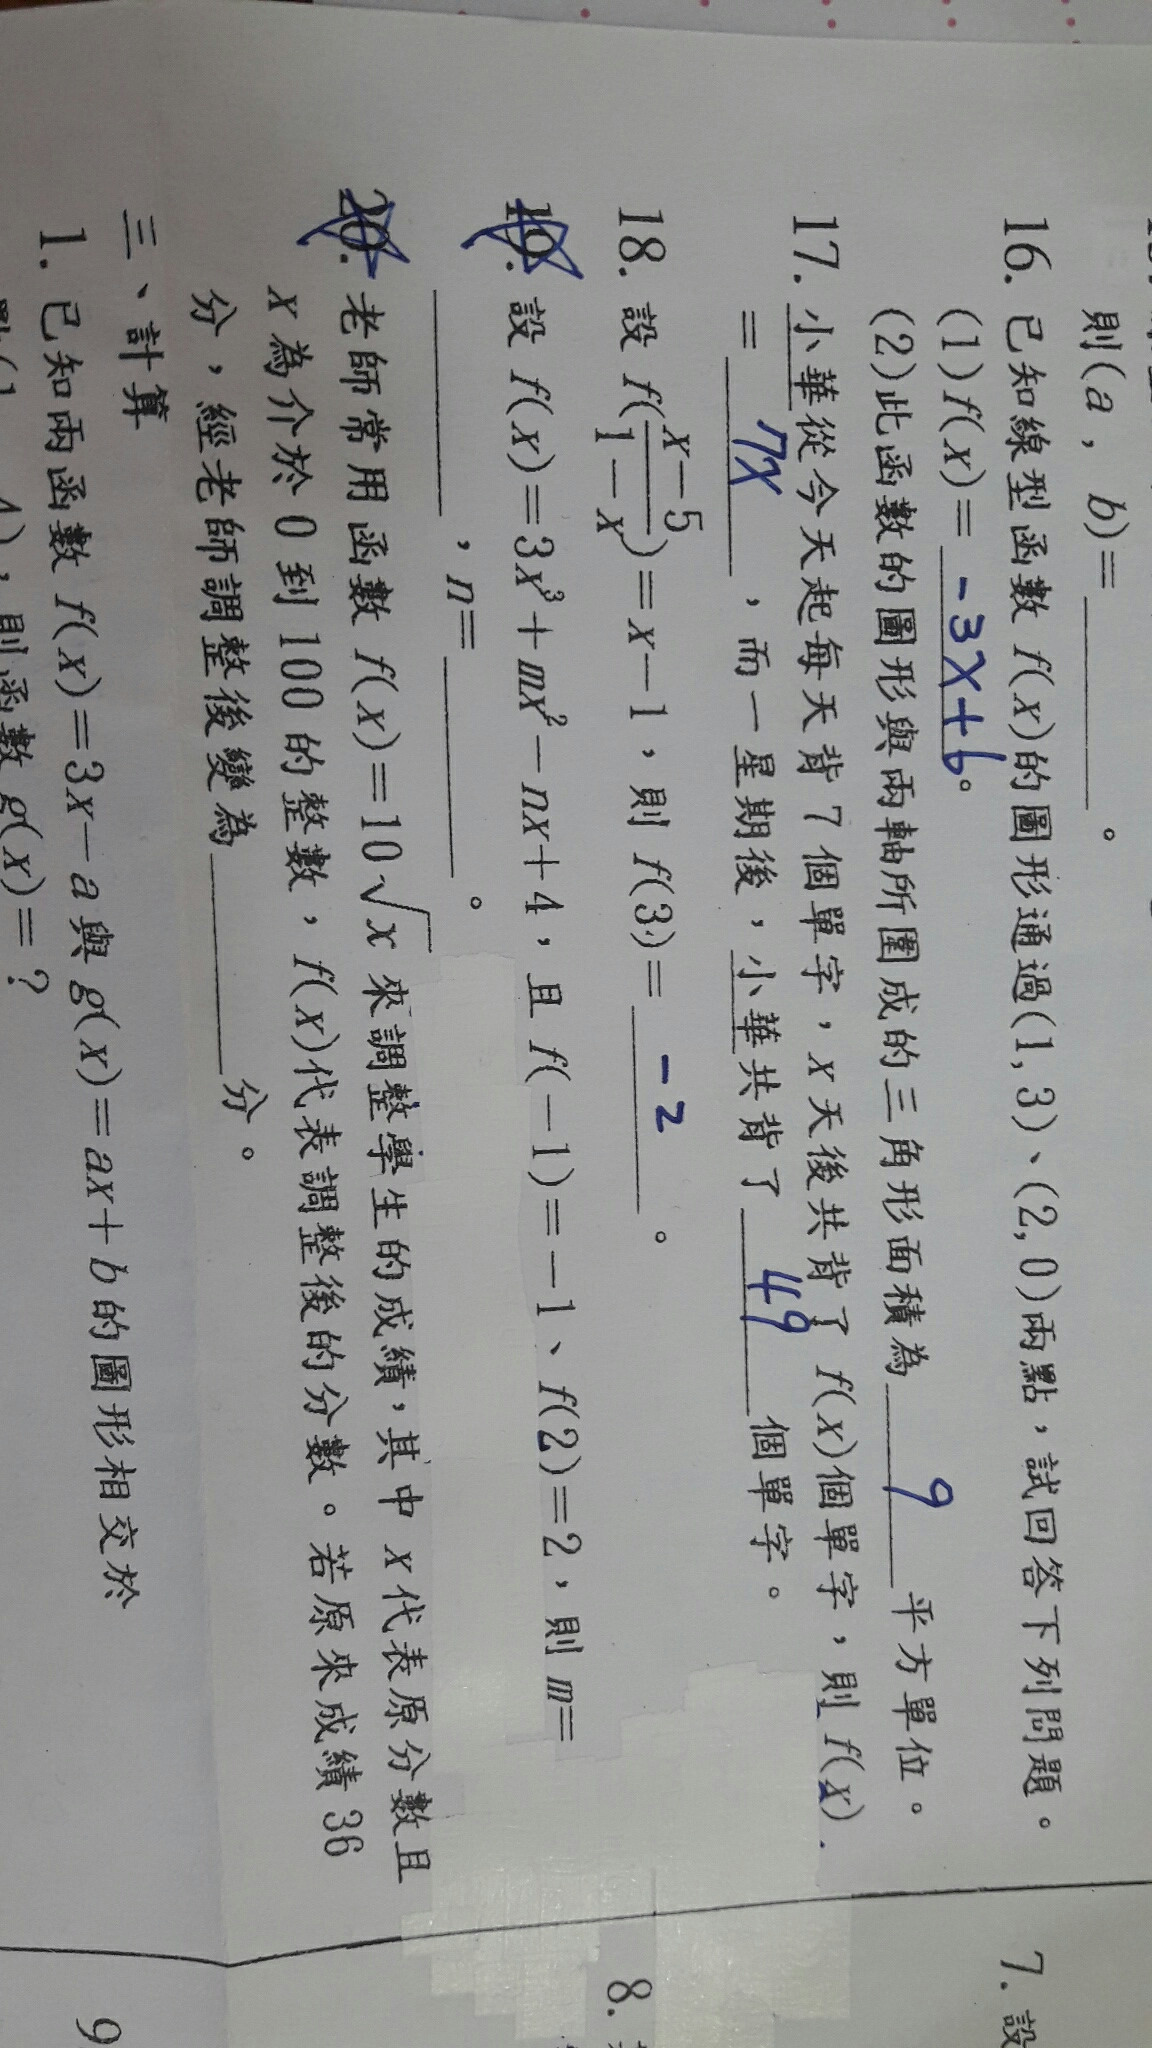 則(a, b)=________。
16. 已知線型函數 f(x)的圖形通過(1, 3)、(2, 0)兩點，試回答下列問題。
(1) f(x)= -3x+6。
(2)此函數的圖形與兩軸所圍成的三角形面積為 9 平方單位。
17. 小華從今天起每天背 7 個單字，x 天後共背了 f(x)個單字，則 f(x)
= 7x ，而一星期後，小華共背了 49 個單字。
18. 設 f(\frac{x-5}{1-x})=x-1，則 f(3)= -2 。
19. 設 f(x)=3x³+mx²-nx+4，且 f(-1)=-1、f(2)=2，則 m=
________，n=________。
20. 老師常用函數 f(x)=10√x 來調整學生的成績，其中 x 代表原分數且
x 為介於 0 到 100 的整數，f(x)代表調整後的分數。若原來成績 36
分，經老師調整後變為________分。
三、計算
1. 已知兩函數 f(x)=3x-a 與 g(x)=ax+b 的圖形相交於
則函數 g(x)=?
7. 設
8.
9